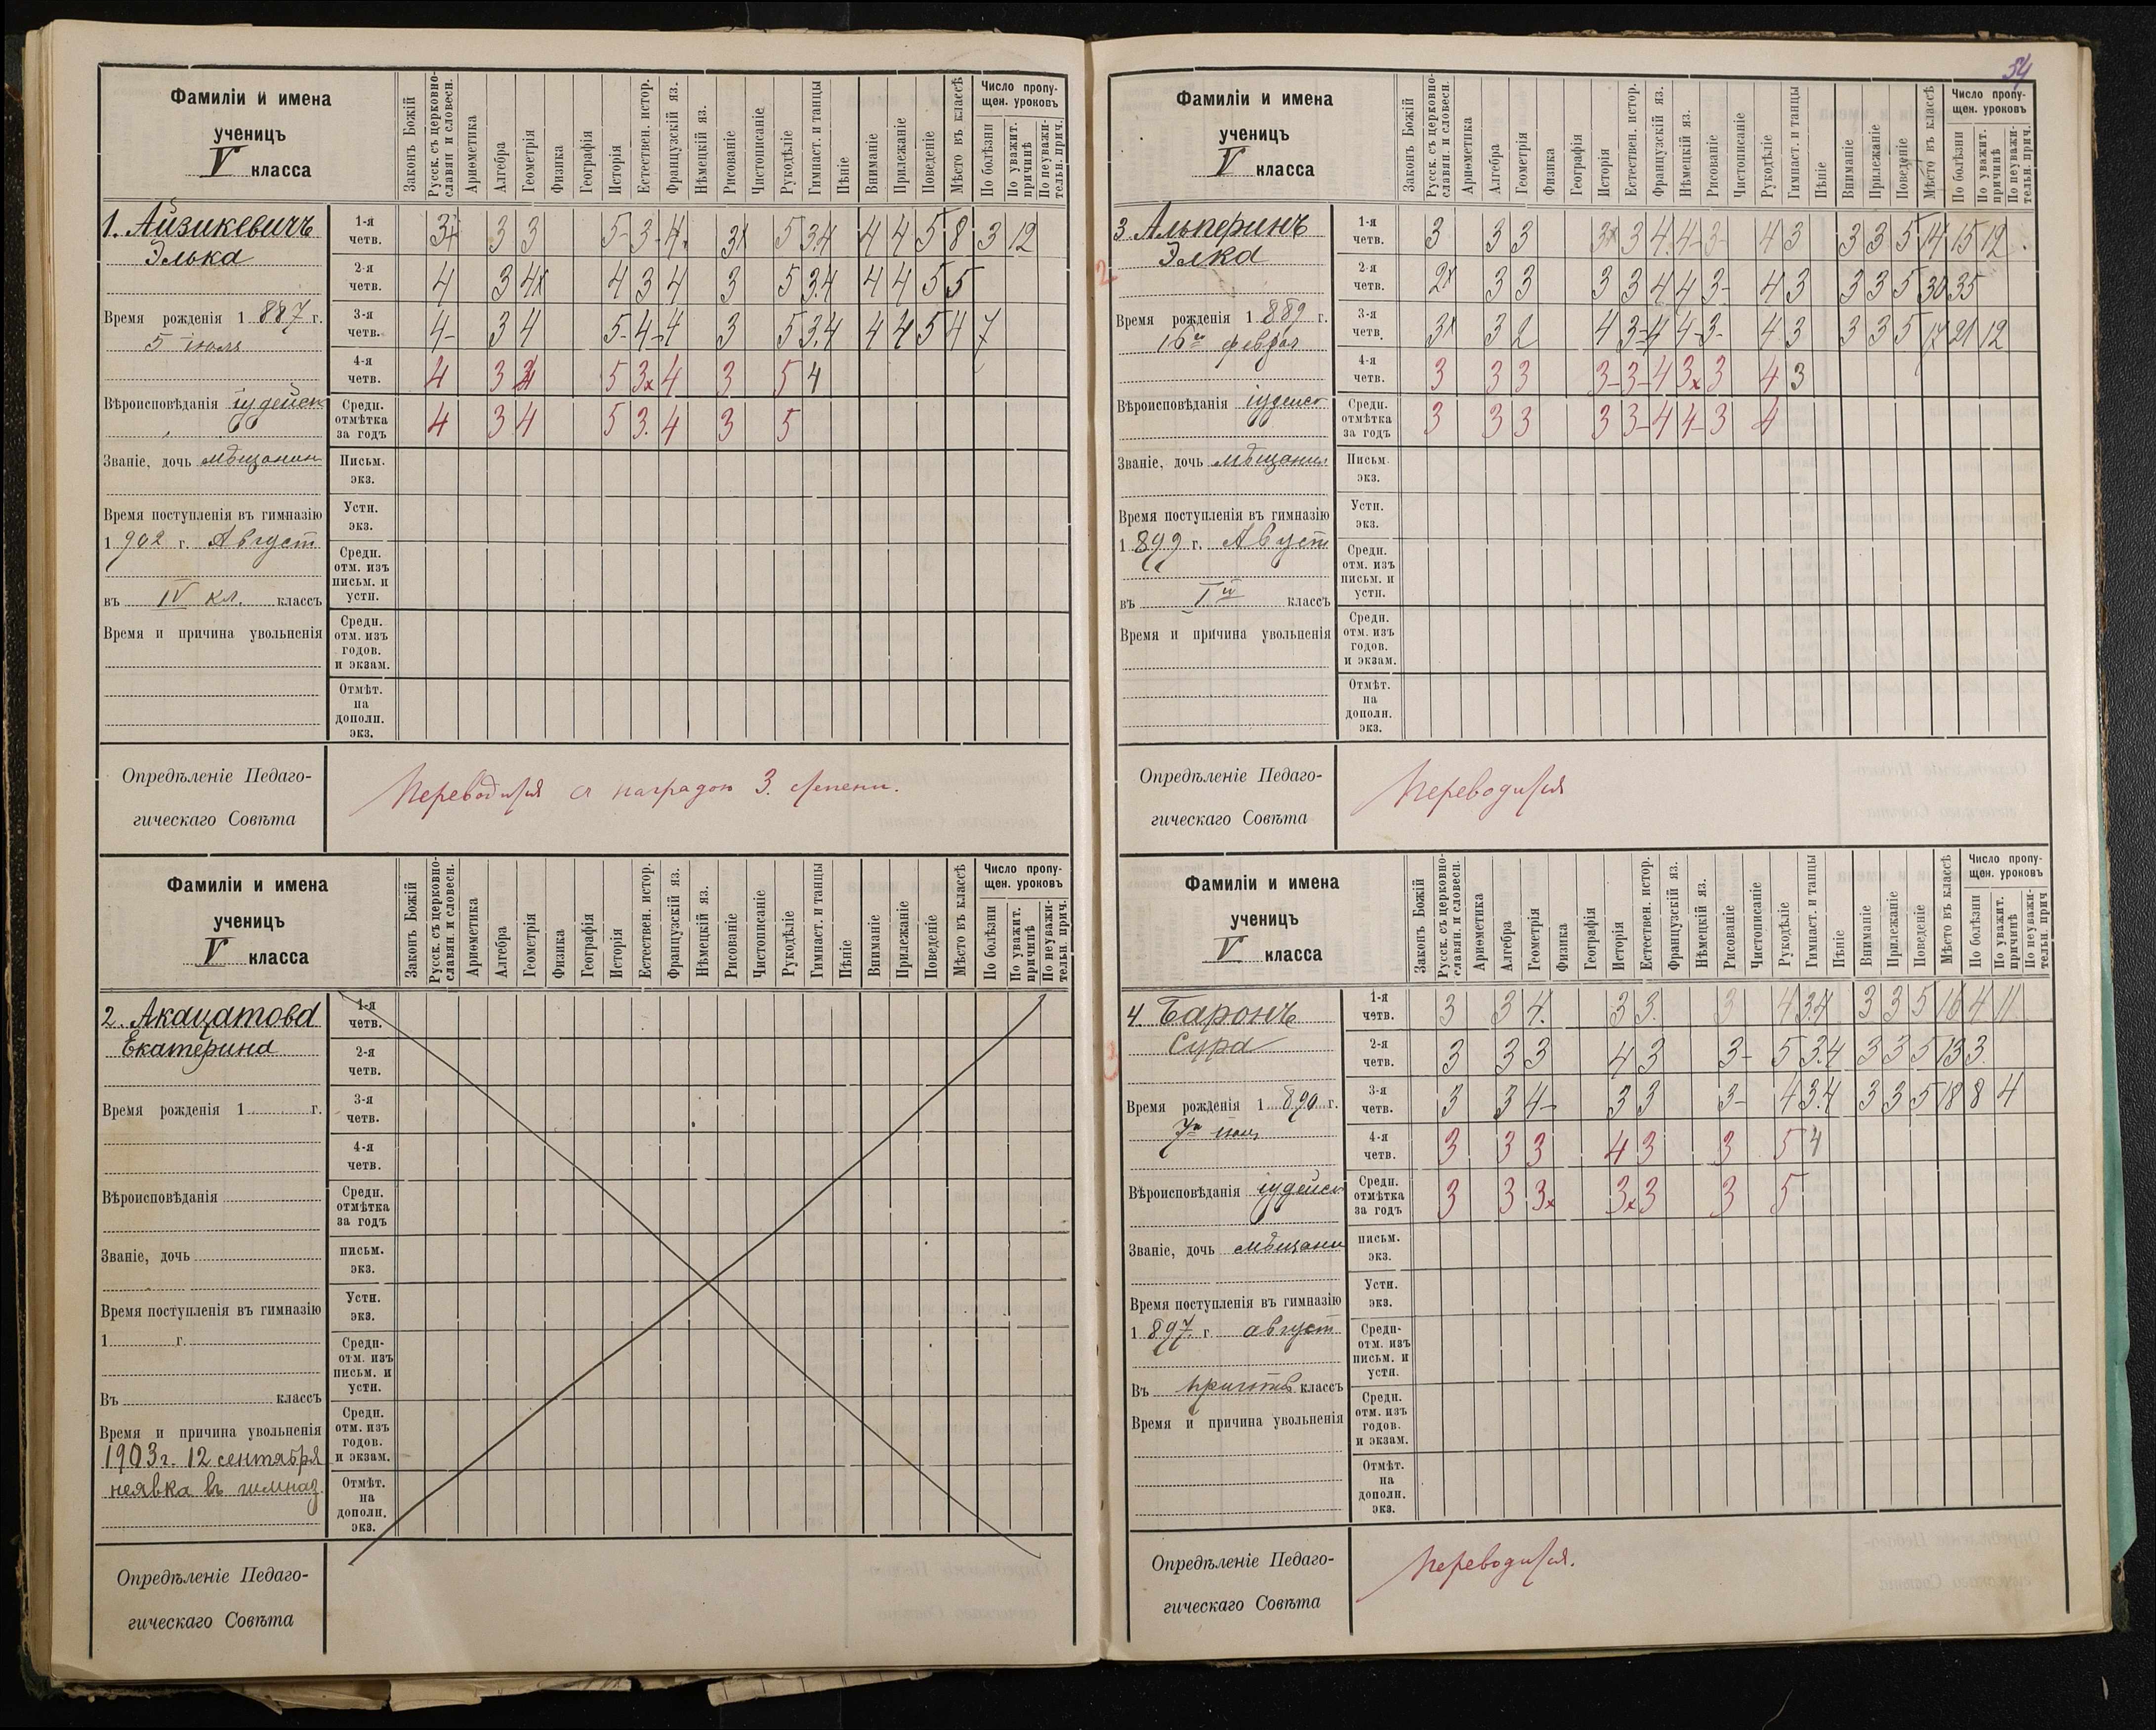 54
Фамиліи и имена
ученицъ
V класса
Законъ Божій
Русск. съ церковно-
славян. и словесн.
Ариѳметика
Алгебра
Геометрія
Физика
Географія
Исторія
Естествен. истор.
Французскій яз.
Нѣмецкій яз.
Рисованіе
Чистописаніе
Рукодѣліе
Гимнаст. и танцы
Пѣніе
Вниманіе
Прилежаніе
Поведеніе
Мѣсто въ классѣ
Число пропу-
щен. уроковъ
По болѣзни
По уважит.
причинѣ
По неуважи-
тельн. прич.
1. Айзикевичъ
Элька
Время рожденія 1887 г.
5 июля
Вѣроисповѣданія іудейск
Званіе, дочь мѣщанин
Время поступленія въ гимназію
1902 г. Август
въ IV кл. классъ
Время и причина увольненія
1-я четв. 3+ 3 3 5- 3- 4. 3х 5 3.4 4 4 5 8 3 12
2-я четв. 4 3 4х 4 3 4 3 5 3.4 4 4 5 5
3-я четв. 4- 3 4 5- 4- 4 3 5 3.4 4 4 5 4 7
4-я четв. 4 3 5 3х 4 3 5 4
Средн. отмѣтка за годъ 4 3 4 5 3. 4 3 5
Письм. экз.
Устн. экз.
Средн. отм. изъ письм. и устн.
Средн. отм. изъ годов. и экзам.
Отмѣт. на дополн. экз.
Опредѣленіе Педаго-
гическаго Совѣта
Переводится съ наградою 3. степени.
Фамиліи и имена
ученицъ
V класса
Законъ Божій
Русск. съ церковно-
славян. и словесн.
Ариѳметика
Алгебра
Геометрія
Физика
Географія
Исторія
Естествен. истор.
Французскій яз.
Нѣмецкій яз.
Рисованіе
Чистописаніе
Рукодѣліе
Гимнаст. и танцы
Пѣніе
Вниманіе
Прилежаніе
Поведеніе
Мѣсто въ классѣ
Число пропу-
щен. уроковъ
По болѣзни
По уважит.
причинѣ
По неуважи-
тельн. прич.
2. Акацатова
Екатерина
Время рожденія 1 г.
Вѣроисповѣданія
Званіе, дочь
Время поступленія въ гимназію
1 г.
Въ классъ
Время и причина увольненія
1903 г. 12 сентября
неявка въ гимназ.
1-я четв.
2-я четв.
3-я четв.
4-я четв.
Средн. отмѣтка за годъ
письм. экз.
Устн. экз.
Средн- отм. изъ письм. и устн.
Средн. отм. изъ годов. и экзам.
Отмѣт. на дополн. экз.
Опредѣленіе Педаго-
гическаго Совѣта
Фамиліи и имена
ученицъ
V класса
Законъ Божій
Русск. съ церковно-
славян. и словесн.
Ариѳметика
Алгебра
Геометрія
Физика
Географія
Исторія
Естествен. истор.
Французскій яз.
Нѣмецкій яз.
Рисованіе
Чистописаніе
Рукодѣліе
Гимнаст. и танцы
Пѣніе
Вниманіе
Прилежаніе
Поведеніе
Мѣсто въ классѣ
Число пропу-
щен. уроковъ
По болѣзни
По уважит.
причинѣ
По неуважи-
тельн. прич.
3. Альперинъ
Элка
2
Время рожденія 1889 г.
16го феврал
Вѣроисповѣданія іудейск
Званіе, дочь мѣщанин
Время поступленія въ гимназію
1899 г. Август
въ Iй классъ
Время и причина увольненія
1-я четв. 3 3 3 3х 3 4. 4- 3- 4 3 3 3 5 14 15 12
2-я четв. 2х 3 3 3 3 4 4 3- 4 3 3 3 5 30 35
3-я четв. 3х 3 2 4 3- 4 4- 3- 4 3 3 3 5 17 21 12
4-я четв. 3 3 3 3- 3- 4 3х 3 4 3
Средн. отмѣтка за годъ 3 3 3 3 3- 4 4- 3 4
Письм. экз.
Устн. экз.
Средн. отм. изъ письм. и устн.
Средн. отм. изъ годов. и экзам.
Отмѣт. на дополн. экз.
Опредѣленіе Педаго-
гическаго Совѣта
Переводится
Фамиліи и имена
ученицъ
V класса
Законъ Божій
Русск. съ церковно-
славян. и словесн.
Ариѳметика
Алгебра
Геометрія
Физика
Географія
Исторія
Естествен. истор.
Французскій яз.
Нѣмецкій яз.
Рисованіе
Чистописаніе
Рукодѣліе
Гимнаст. и танцы
Пѣніе
Вниманіе
Прилежаніе
Поведеніе
Мѣсто въ классѣ
Число пропу-
щен. уроковъ
По болѣзни
По уважит.
причинѣ
По неуважи-
тельн. прич
4 Баронъ
Сура
3
Время рожденія 1890 г.
7го
Вѣроисповѣданія іудейск
Званіе, дочь мѣщани
Время поступленія въ гимназію
1897 г. август
Въ пригот. классъ
Время и причина увольненія
1-я четв. 3 3 4. 3 3. 3 4 3.4 3 3 5 16 4 11
2-я четв. 3 3 3 4 3 3- 5 3.4 3 3 5 13 3.
3-я четв. 3 3 4- 3 3 3- 4 3.4 3 3 5 18 8 4
4-я четв. 3 3 3 4 3 3 5 4
Средн. отмѣтка за годъ 3 3 3х 3х 3 3 5
письм. экз.
Устн. экз.
Средн- отм. изъ письм. и устн.
Средн. отм. изъ годов. и экзам.
Отмѣт. на дополн. экз.
Опредѣленіе Педаго-
гическаго Совѣта
Переводится.